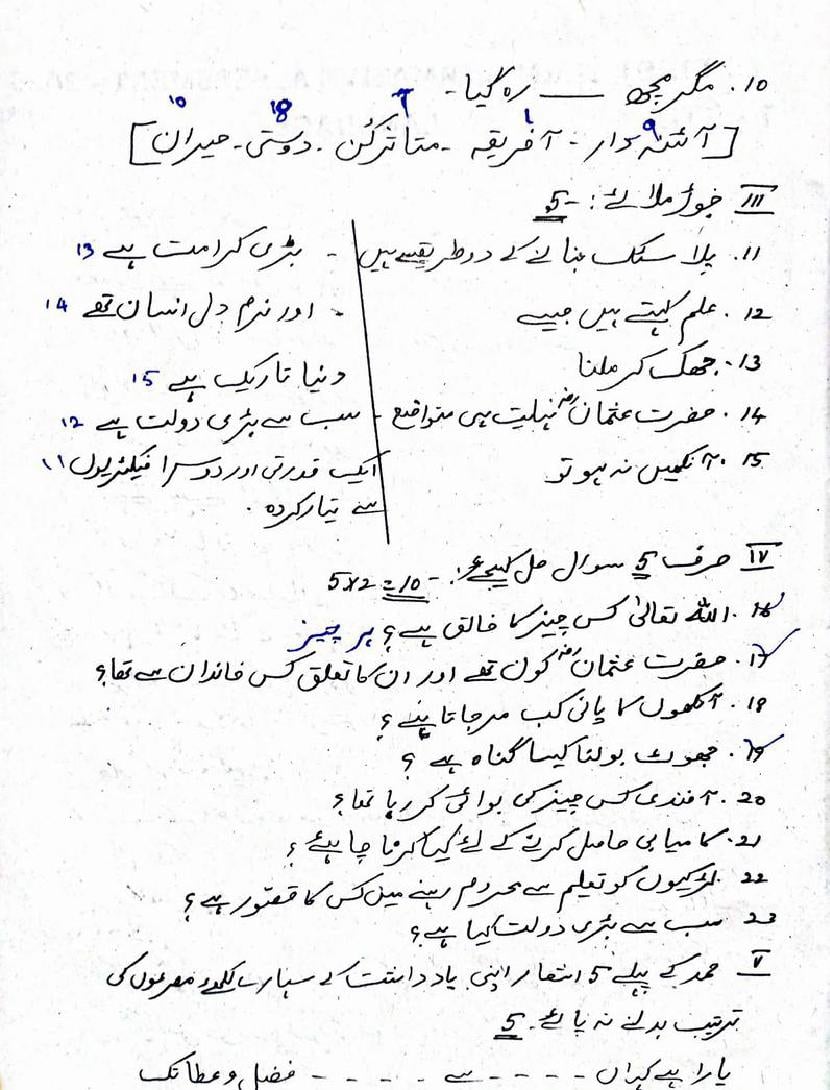 10. مگرمچھ ــــ رہ گیا۔
10 8 7 1 9
[آئینہ دار - آفریقہ - متاثر کُن - دوستی - حیران]
III جوڑ ملائے :- 5
11. پلاسٹک بنانے کے دو طریقے ہیں - بڑی کرامت ہے 13
12. علم کہتے ہیں جسے - اور نرم دل انسان تھے 14
13. جھک کر ملنا دنیا تاریک ہے 15
14. حضرت عثمانؓ نہایت ہی متواضع - سب سے بڑی دولت ہے 12
15. آنکھیں نہ ہو تو ایک قدرتی اور دوسرا فیکٹریوں 11
سے تیار کردہ .
IV صرف 5 سوال حل کیجیے :- 5x2=10
16. اللہ تعالیٰ کس چیز کا خالق ہے؟ ہر چیز
17. حضرت عثمانؓ کون تھے اور ان کا تعلق کس خاندان سے تھا؟
18. آنکھوں کا پانی کب مر جاتا ہے؟
19. جھوٹ بولنا کیسا گناہ ہے؟
20. آفندی کس چیز کی بوائی کر رہا تھا؟
21. کامیابی حاصل کرنے کے لئے کیا کرنا چاہیئے؟
22 لڑکیوں کو تعلیم سے محروم رہنے میں کس کا قصور ہے؟
23 سب سے بڑی دولت کیا ہے؟
V حمد کے پہلے 5 اشعار اپنی یادداشت کے سہارے لکھے مصرعوں کی
ترتیب بدلنے نہ پائے. 5
یارا ہے کہاں - - - - سے - - - - - فضل و عطا تک